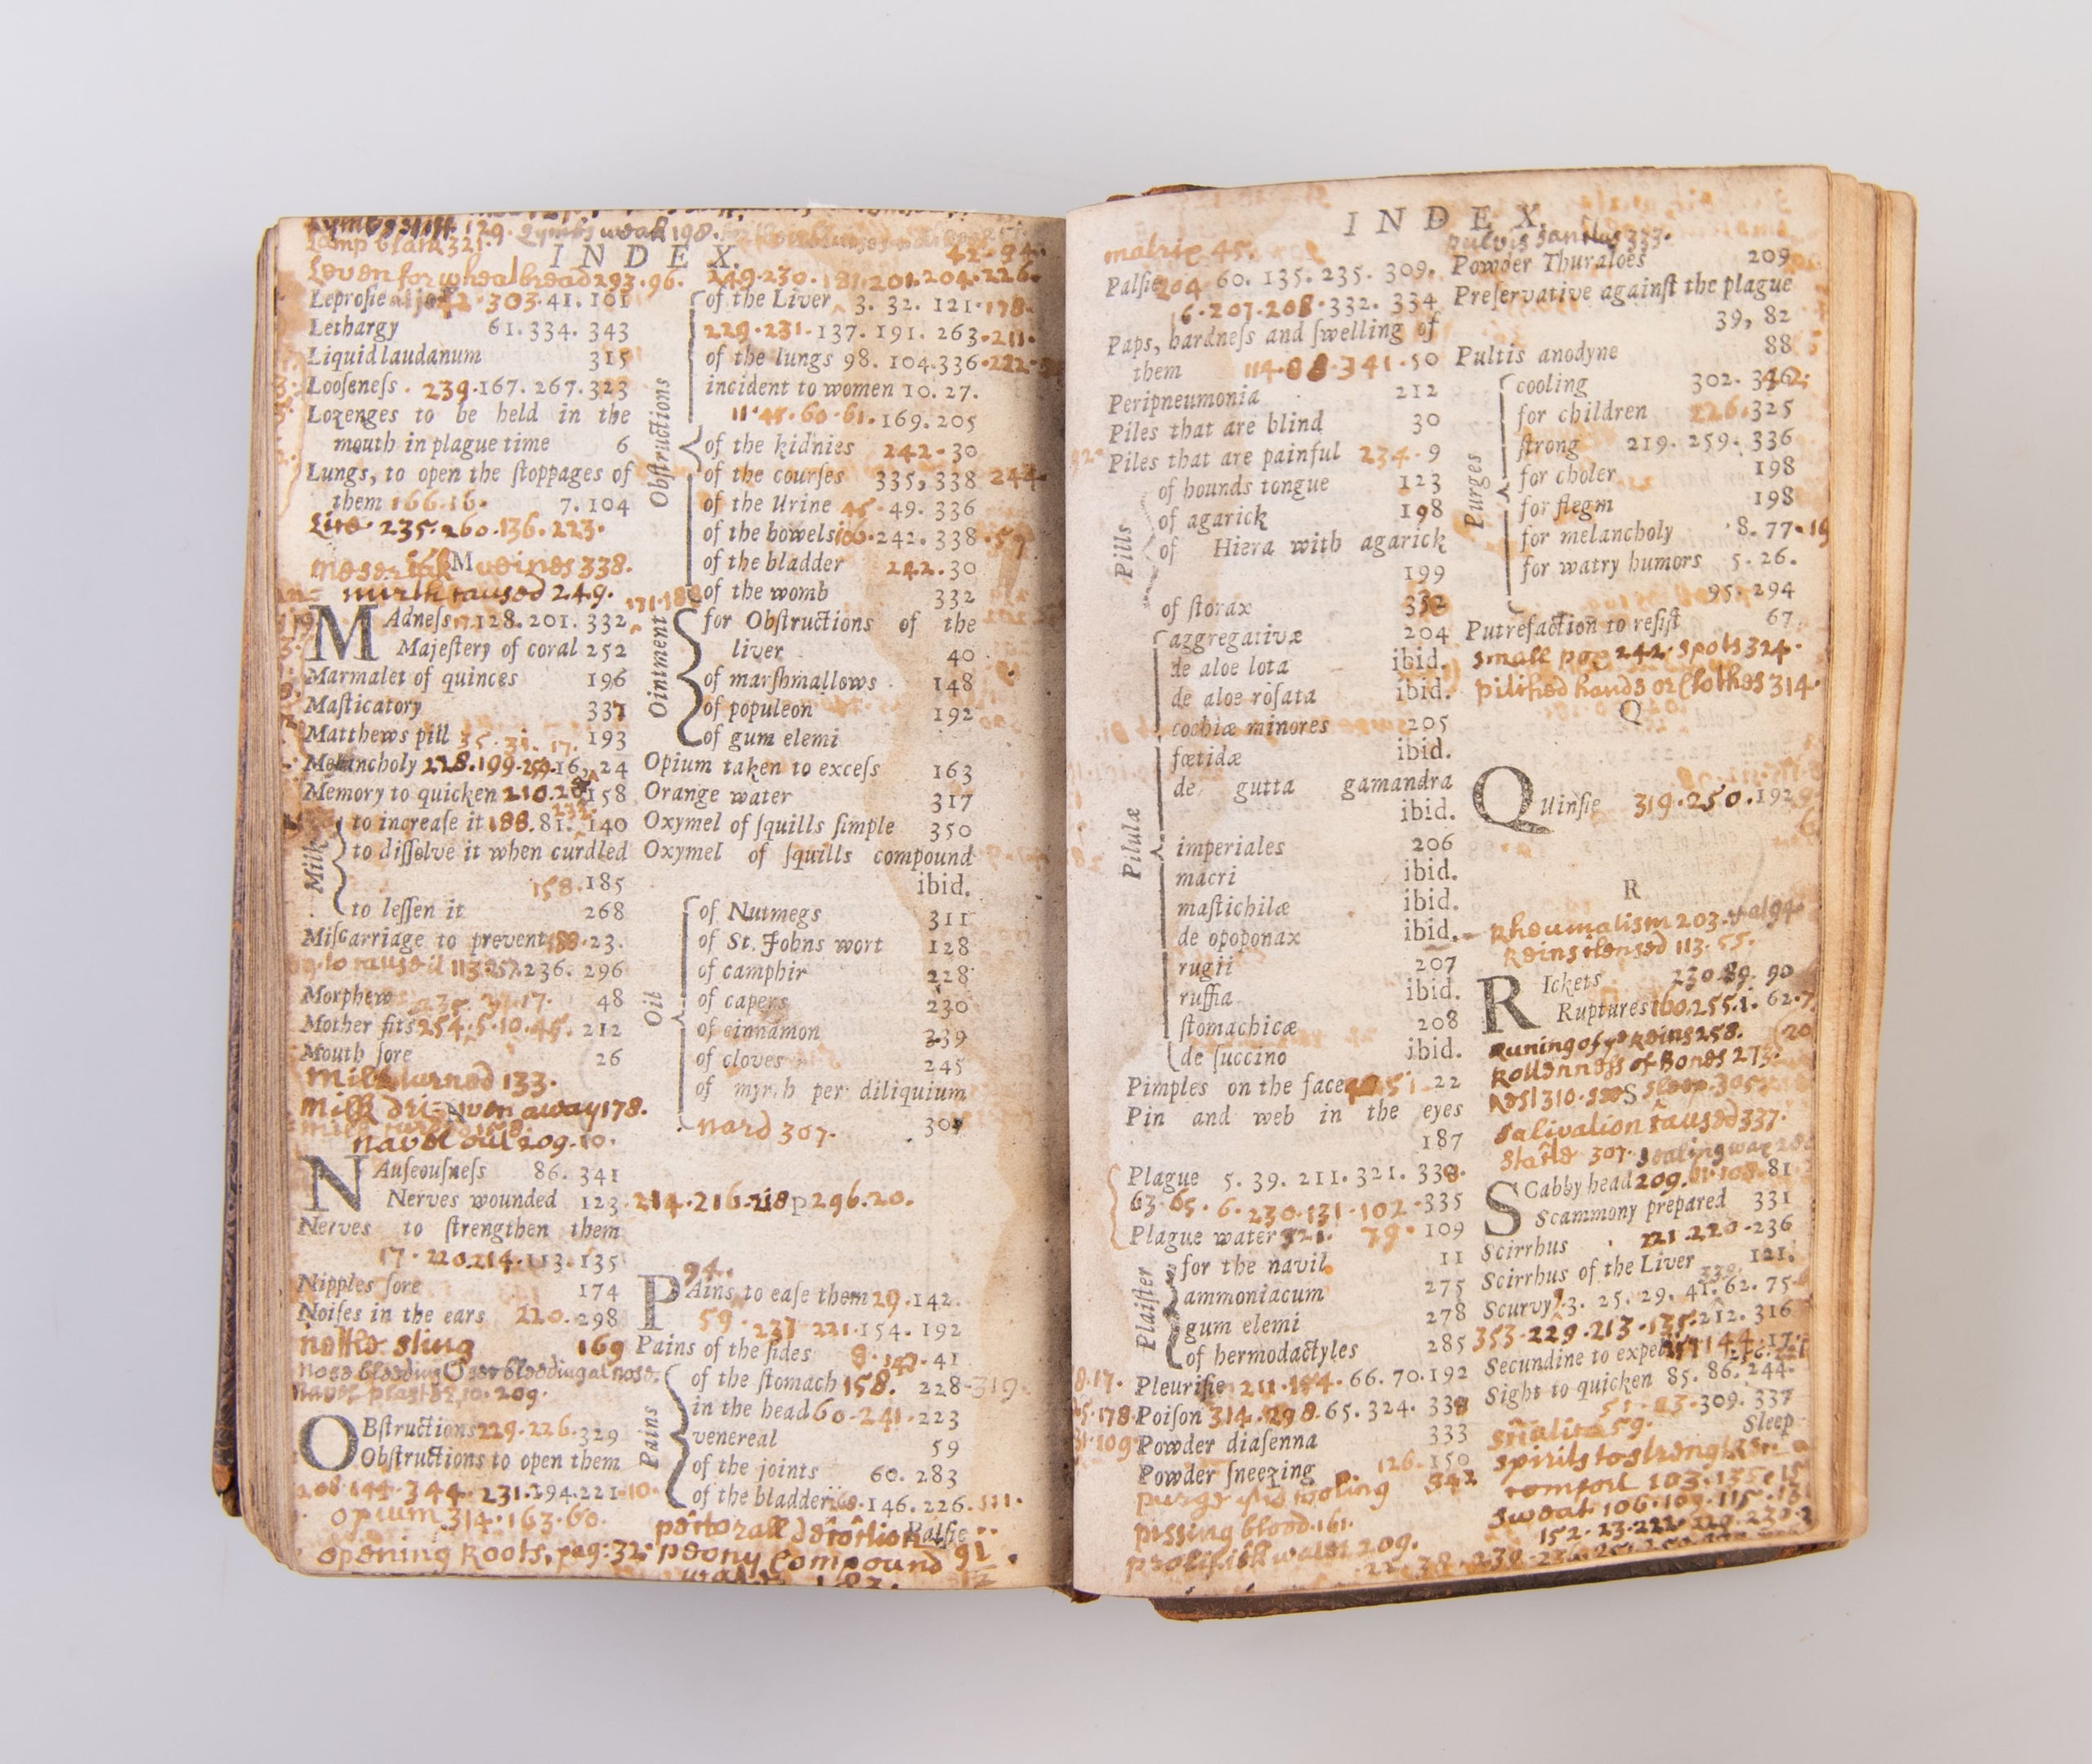 Lymbs stiff 129. Lymbs weak 198.
Lamp blank 321.
INDEX.
Leven for wheal bread 293. 96.
Leprosie 303. 41. 101
Lethargy 61. 334. 343
Liquid laudanum 315
Looſeneſs. 239. 167. 267. 323
Lozenges to be held in the
mouth in plague time 6
Lungs, to open the ſtoppages of
them 166. 16. 7. 104
Lice. 235. 260. 136. 223.
M
meseriak veines 338.
mirth caused 249.
MAdneſs 128. 201. 332
Majeſtery of coral 252
Marmalet of quinces 196
Maſticatory 337
Matthews pill 35. 31. 17. 193
Melancholy 228. 199. 16, 24
Memory to quicken 210. 158
Milk
to increaſe it 188. 81. 140
to diſſolve it when curdled
158. 185
to leſſen it 268
Miſcarriage to prevent 188. 23.
to cause it 113. 236. 296
Morphew 48
Mother fits 254. 5. 10. 45. 212
Mouth ſore 26
Milk turned 133.
Milk driven away 178.
N
navel out 209. 10.
NAuſeouſneſs 86. 341
Nerves wounded 123
Nerves to ſtrengthen them
17. 220. 214. 113. 135
Nipples ſore 174
Noiſes in the ears 220. 298
nettle sting 169
nose bleeding
O
navel plaster 10. 209.
OBſtructions 229. 226. 329
Obſtructions to open them
208. 144. 344. 231. 194. 221. 10.
opium 314. 163. 60.
opening Roots, pag: 32.
42. 94.
249. 230. 181. 201. 204. 226.
Obſtructions
of the Liver 3. 32. 121. 178.
229. 231. 137. 191. 263. 211.
of the lungs 98. 104. 336. 222.
incident to women 10. 27.
11. 45. 60. 61. 169. 205
of the kidnies 242. 30
of the courſes 335, 338 244
of the Urine 45. 49. 336
of the bowels 166. 242. 338. 59
of the bladder 242. 30
of the womb 332
Ointment
for Obſtructions of the
liver 40
of marſhmallows 148
of populeon 192
of gum elemi
Opium taken to exceſs 163
Orange water 317
Oxymel of ſquills ſimple 350
Oxymel of ſquills compound
ibid.
Oil
of Nutmegs 311
of St. Johns wort 128
of camphir 228
of capers 230
of cinnamon 239
of cloves 245
of myrrh per diliquium
nard 307.
214. 216. 218 P 296. 20.
94.
PAins to eaſe them 29. 142.
59. 237. 221. 154. 192
Pains of the ſides 41
Pains
of the ſtomach 158. 228. 319.
in the head 60. 241. 223
venereal 59
of the joints 60. 283
of the bladder 146. 226. 311.
Palſie
pectorall decoction
peony compound 91
water 182.
INDEX.
matrix 45.
Palſie 204. 60. 135. 235. 309.
6. 207. 208. 332. 334
Paps, hardneſs and ſwelling of
them 114. 88. 341. 50
Peripneumonia 212
Piles that are blind 30
Piles that are painful 234. 9
Pills
of hounds tongue 123
of agarick 198
of Hiera with agarick
199
of ſtorax 332
Pilulæ
aggregativæ 204
de aloe lota ibid.
de aloe roſata ibid.
cochiæ minores 205
fœtidæ ibid.
de gutta gamandra
ibid.
imperiales 206
macri ibid.
maſtichilæ ibid.
de opoponax ibid.
rugii 207
ruffia ibid.
ſtomachicæ 208
de ſuccino ibid.
Pimples on the face 22
Pin and web in the eyes
187
Plague 5. 39. 211. 321. 338.
63. 65. 6. 230. 131. 102. 335
Plague water 321. 79. 109
Plaiſter
for the navil 11
ammoniacum 275
gum elemi 278
of hermodactyles 285
Pleuriſie 211. 194. 66. 70. 192
Poiſon 314. 298. 65. 324. 338
Powder diaſenna 333
Powder ſneezing 126. 150
purge cooling 342
pissing blood 161.
prolifick water 209.
pulvis sanctus 333.
Powder Thuraloes 209
Preſervative againſt the plague
39, 82
Pultis anodyne 88
Purges
cooling 302. 346
for children 226. 325
ſtrong 219. 259. 336
for choler 198
for flegm 198
for melancholy 8. 77. 19
for watry humors 5. 26.
95. 294
Putrefaction to reſiſt 67
small pox 242. spots 324.
pitched hands or clothes 314.
Q
QUinſie 319. 250. 192
R
Rheumatism 203.
Reins clensed 113. 55.
RIckets 230. 89. 90
Ruptures 160. 255. 1. 62. 7
Runing of ye Reins 258.
Rottenness of Bones 273.
Rest 310. S sleep 305
Salivation caused 337.
Starts 307. sealing wax
SCabby head 209. 81
Scammony prepared 331
Scirrhus 221. 220. 236
Scirrhus of the Liver 121.
Scurvy 3. 25. 29. 41. 62. 75
353. 229. 213. 135. 212. 316
Secundine to expel 144. 17.
Sight to quicken 85. 86. 244.
309. 337
Sleep
sciatica 59.
spirits to strengthen
comfort 103. 135.
sweat 106. 109. 115.
152. 23. 222.